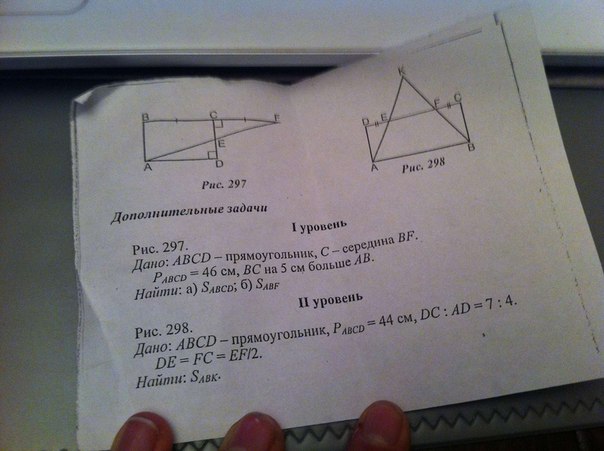 B C F
E
A D
Рис. 297
K
D E F C
A B
Рис. 298
Дополнительные задачи
I уровень
Рис. 297.
Дано: ABCD – прямоугольник, C – середина BF.
P_ABCD = 46 см, BC на 5 см больше AB.
Найти: а) S_ABCD; б) S_ABF
II уровень
Рис. 298.
Дано: ABCD – прямоугольник, P_ABCD = 44 см, DC : AD = 7 : 4.
DE = FC = EF/2.
Найти: S_ABK.